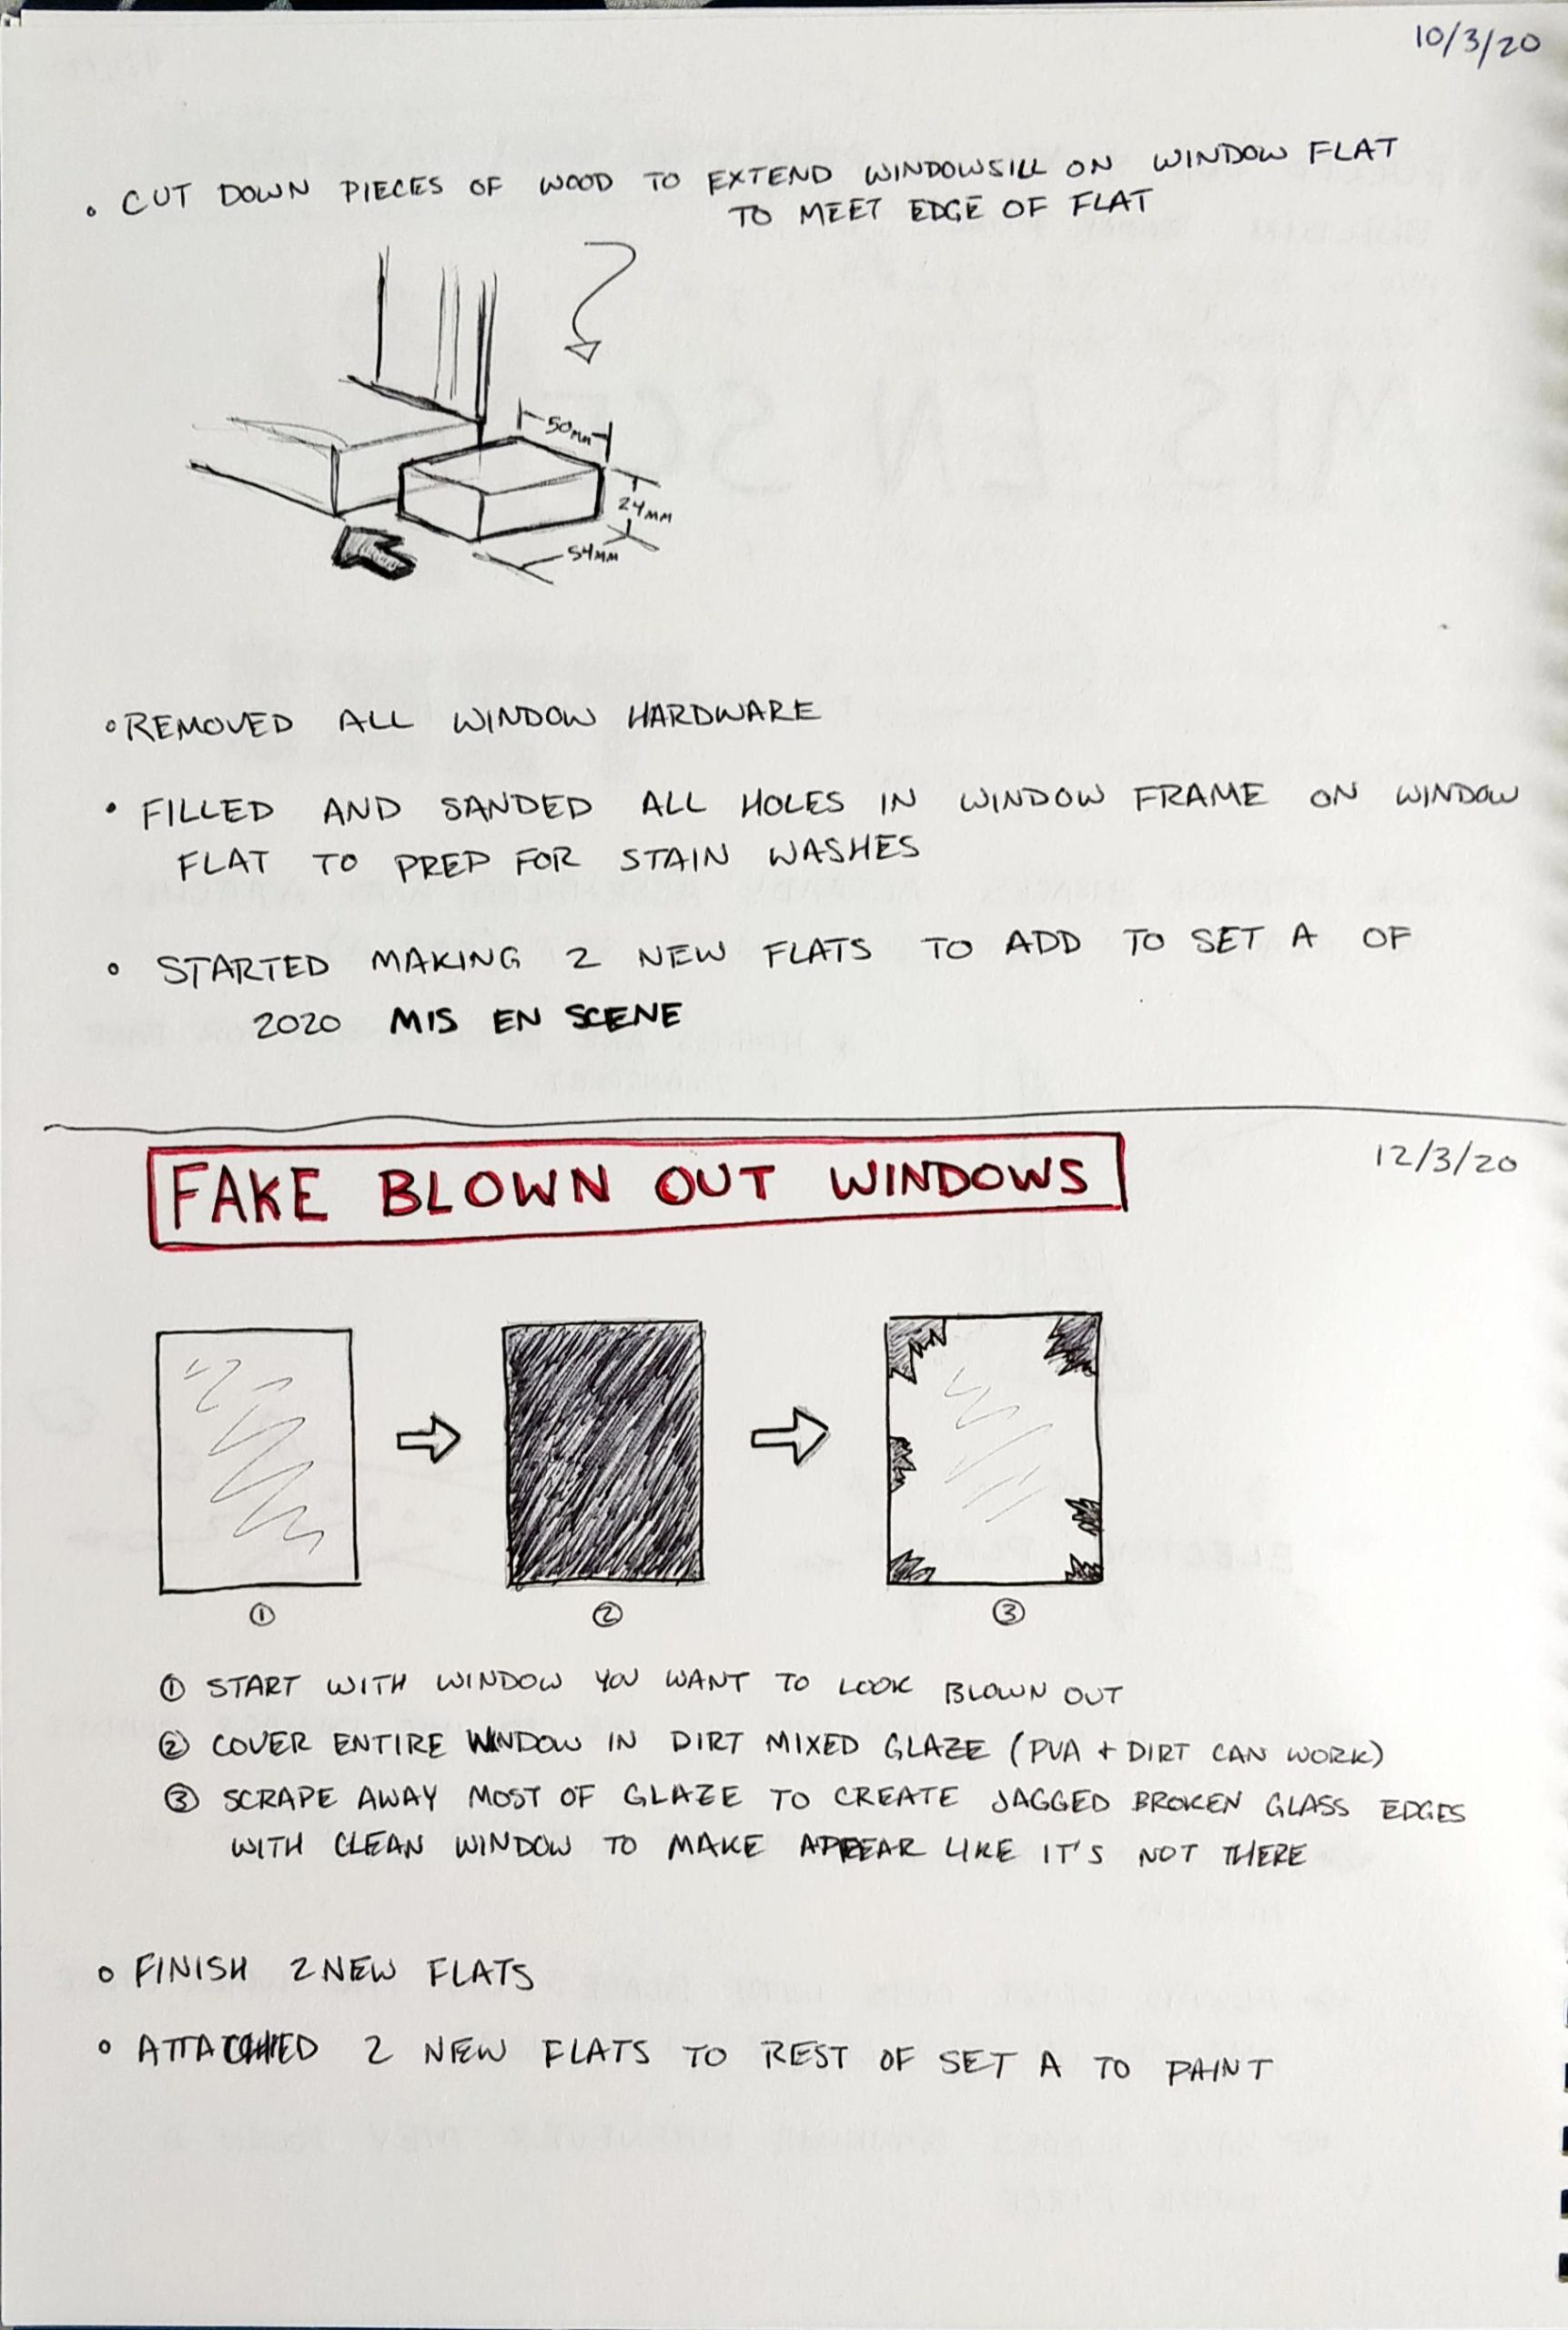 10/3/20
• CUT DOWN PIECES OF WOOD TO EXTEND WINDOWSILL ON WINDOW FLAT
TO MEET EDGE OF FLAT
50mm
24mm
54mm
• REMOVED ALL WINDOW HARDWARE
• FILLED AND SANDED ALL HOLES IN WINDOW FRAME ON WINDOW
FLAT TO PREP FOR STAIN WASHES
• STARTED MAKING 2 NEW FLATS TO ADD TO SET A OF
2020 MIS EN SCENE
FAKE BLOWN OUT WINDOWS
12/3/20
① ② ③
① START WITH WINDOW YOU WANT TO LOOK BLOWN OUT
② COVER ENTIRE WINDOW IN DIRT MIXED GLAZE (PVA + DIRT CAN WORK)
③ SCRAPE AWAY MOST OF GLAZE TO CREATE JAGGED BROKEN GLASS EDGES
WITH CLEAN WINDOW TO MAKE APPEAR LIKE IT'S NOT THERE
• FINISH 2 NEW FLATS
• ATTACHED 2 NEW FLATS TO REST OF SET A TO PAINT